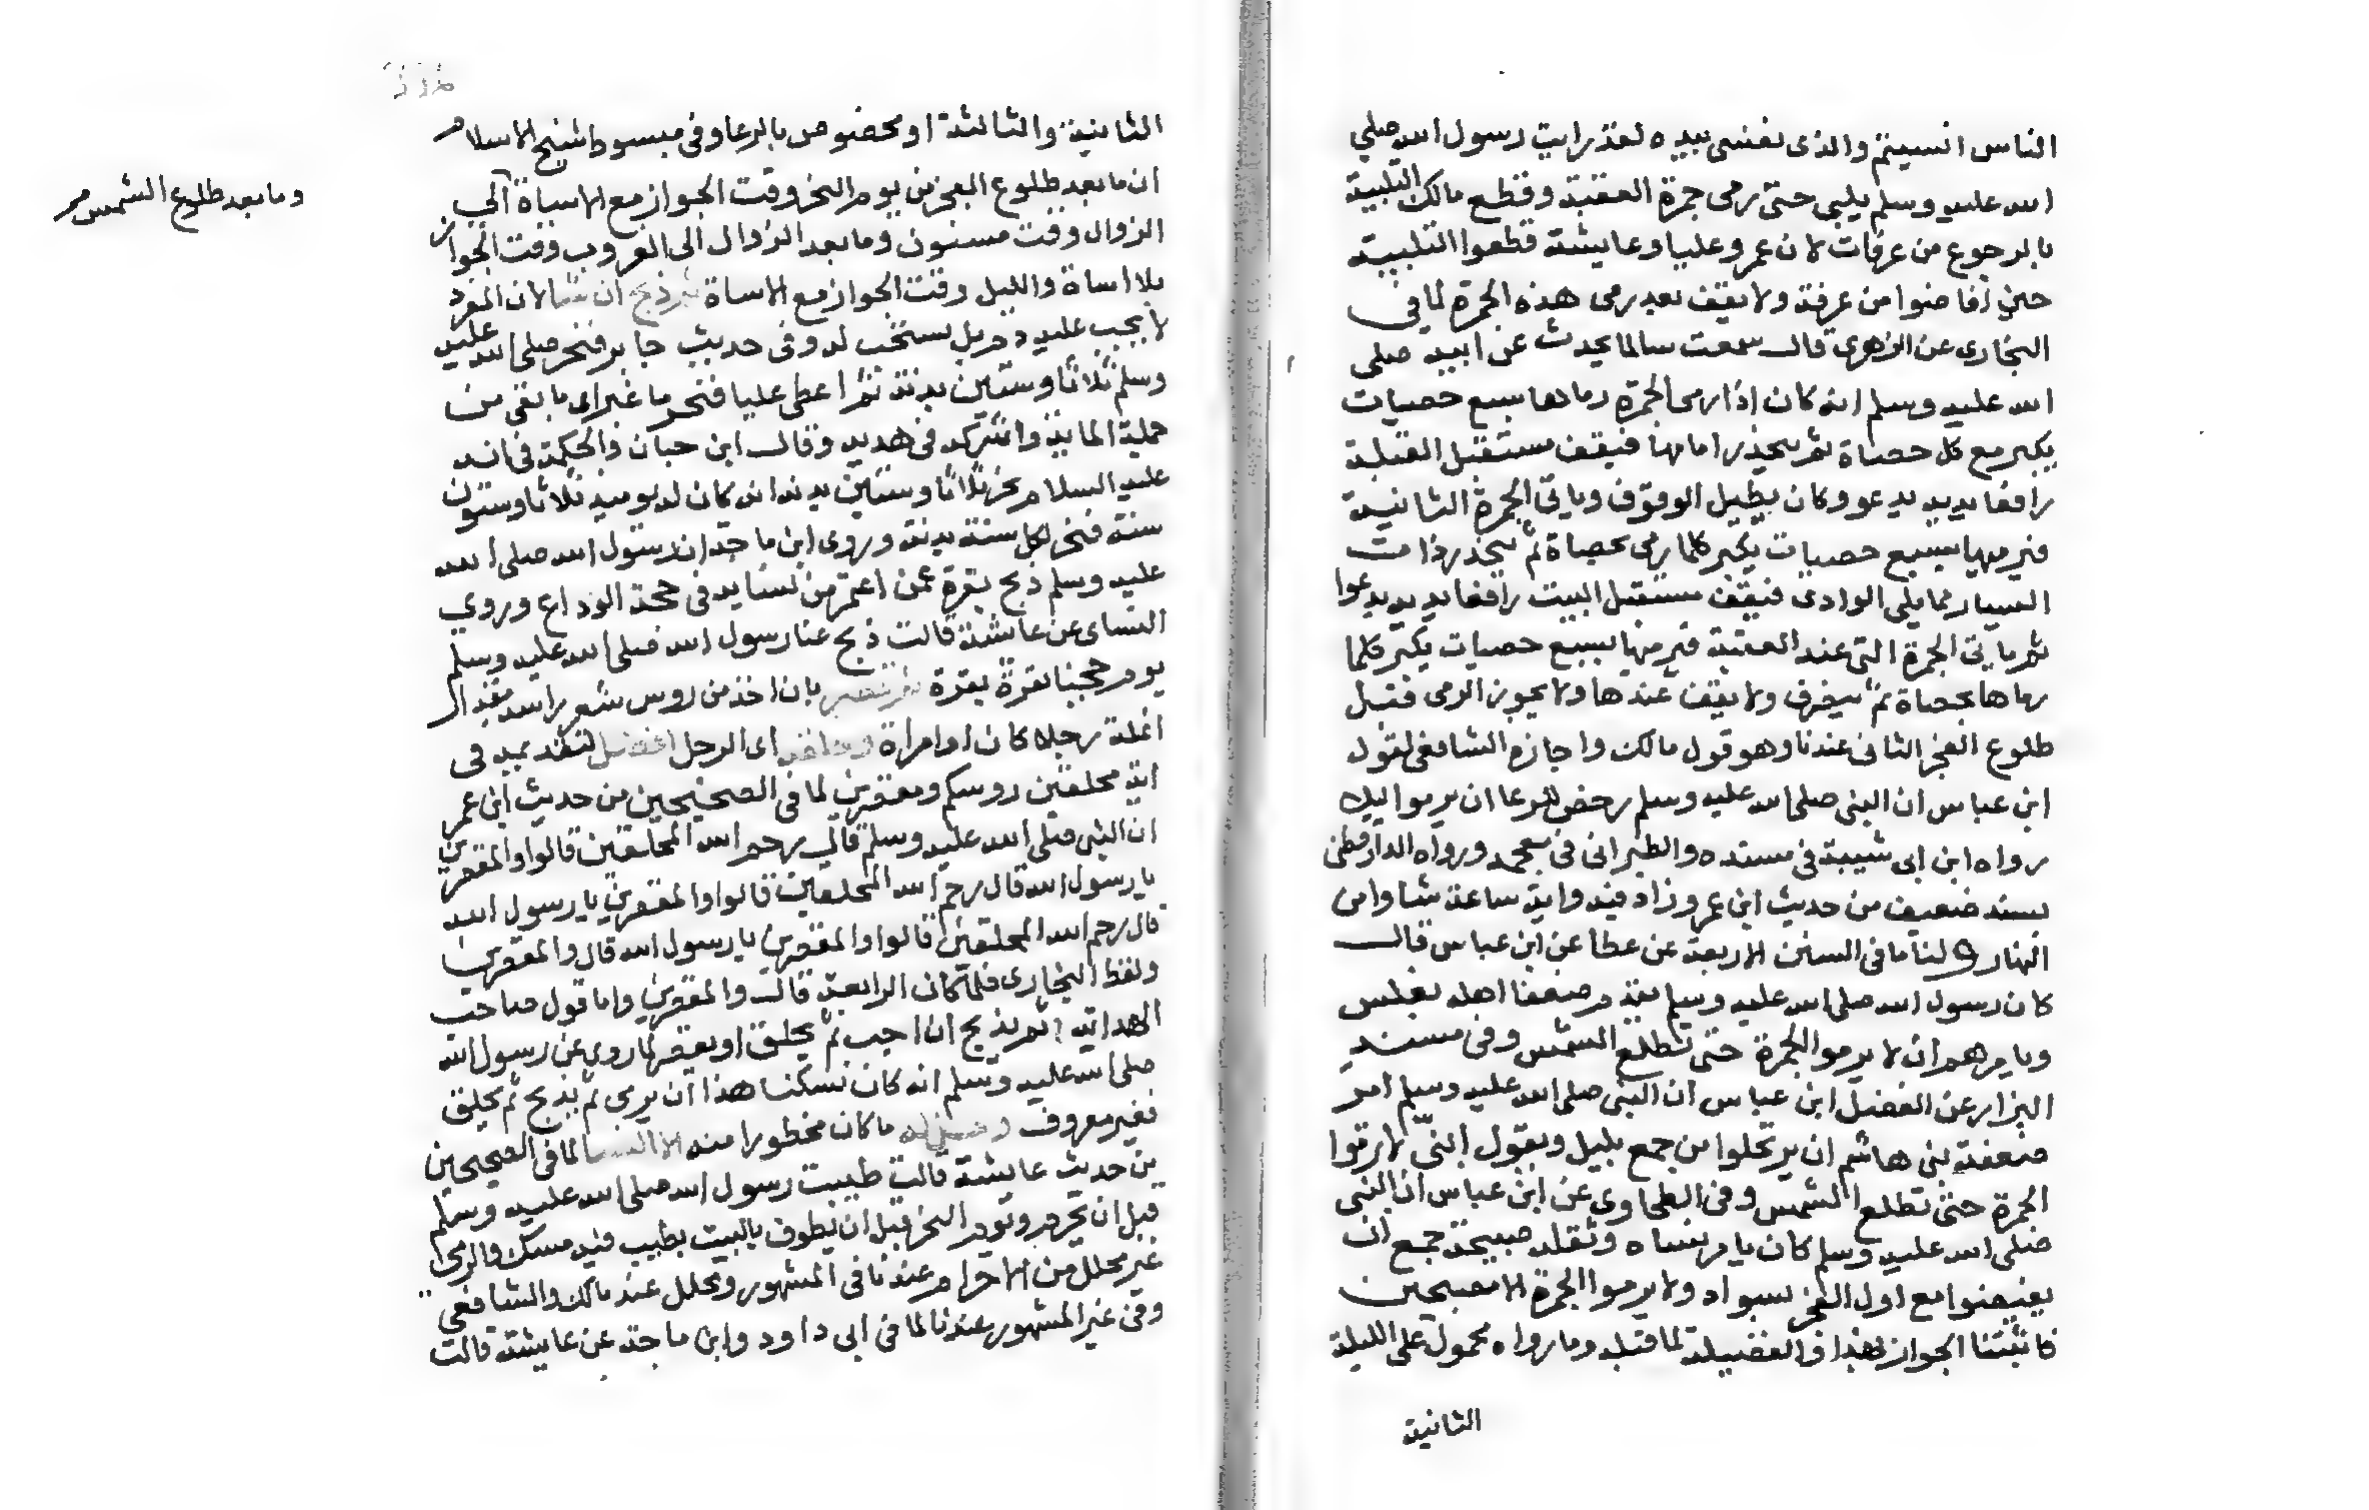 الناس انسيتم والذى نفسى بيده لقد رايت رسول الله صلي
الله عليه وسلم يلبى حتى رمى جمرة العقبة وقطع مالك التلبية
بالرجوع من عرفات لان عمر وعليا وعايشة قطعوا التلبية
حين افاضوا من عرفة ولا يقف بعد رمى هذه الجمرة لما في
البخارى عن الزهرى قال سمعت سالما يحدث عن ابيه صلى
الله عليه وسلم انه كان اذا رمى الجمرة رماها بسبع حصيات
يكبر مع كل حصاة ثم ينحدر امامها فيقف مستقبل القبلة
رافعا يديه يدعو وكان يطيل الوقوف وياتى الجمرة الثانية
فيرميها بسبع حصيات يكبر كلما رمى بحصاة ثم ينحدر ذات
اليسار مما يلى الوادى فيقف مستقبل البيت رافعا يديه يدعوا
ثم ياتى الجمرة التى عند العقبة فيرميها بسبع حصيات يكبر كلما
رماها بحصاة ثم ينصرف ولا يقف عندها ولا يجوز الرمى قبل
طلوع الفجر الثانى عندنا وهو قول مالك واجازه الشافعى لقول
ابن عباس ان النبى صلى الله عليه وسلم رخص للرعا ان يرموا ليلا
رواه ابن ابى شيبة فى مسنده والطبرانى فى معجمه ورواه الدارقطنى
بسند ضعيف من حديث ابن عمر وزاد فيه واية ساعة شاوا من
النهار ولنا ما فى السنن الاربعة عن عطا عن ابن عباس قال
كان رسول الله صلى الله عليه وسلم يقدم ضعفا اهله بغلس
ويامرهم ان لا يرموا الجمرة حتى تطلع الشمس وفى مسند
البزار عن الفضل ابن عباس ان النبى صلى الله عليه وسلم امر
ضعفة بنى هاشم ان يرتحلوا من جمع بليل ويقول ابنى لا ترموا
الجمرة حتى تطلع الشمس وفى الطحاوى عن ابن عباس ان النبى
صلى الله عليه وسلم كان يامر نساه وثقله صبيحة جمع ان
يفيضوا مع اول الفجر بسواد ولا يرموا الجمرة الا مصبحين
فاثبتنا الجواز بهذا والفضيلة لما قبله وما رواه محمول على الليلة
الثانية
الثانية والثالثة او مخصوص بالرعا وفى مبسوط شيخ الاسلام
ان ما بعد طلوع الفجر من يوم النحر وقت الجواز مع الاساة الي
وما بعد طلوع الشمس
الزوال وقت مسنون وما بعد الزوال الى الغروب وقت الجواز
بلا اساة والليل وقت الجواز مع الاساة ثم ذبح ان شا لان المفرد
لا يجب عليه دم بل يستحب له وفى حديث جابر فنحر صلى الله عليه
وسلم ثلاثا وستين بدنة ثم اعطى عليا فنحر ما غبر اى ما بقى من
جملة الماية واشركه فى هديه وقال ابن حبان والحكمة فى انه
عليه السلام نحر ثلاثا وستين بدنة انه كان له يوميذ ثلاثا وستون
سنة فنحر لكل سنة بدنة وروى ابن ماجة ان رسول الله صلى الله
عليه وسلم ذبح بقرة عمن اعتمر من نسايه فى حجة الوداع وروي
النساى عن عائشة قالت ذبح عنا رسول الله صلى الله عليه وسلم
يوم حججنا بقرة بقرة ثم قصر بان اخذ من روس شعر راسه مقدار
انملة رجلا كان او امراة وحلقه اى الرجل افضل لتقديمه فى
اية محلقين روسكم ومقصرين لما فى الصحيحين من حديث ابن عمر
ان النبى صلى الله عليه وسلم قال رحم الله المحلقين قالوا والمقصرين
يا رسول الله قال رحم الله المحلقين قالوا والمقصرين يا رسول الله
قال رحم الله المحلقين قالوا والمقصرين يا رسول الله قال والمقصرين
ولفظ البخارى فلما كان الرابعة قال والمقصرين واما قول صاحب
الهداية ثم يذبح ان احب ثم يحلق او يقصر لما روى عن رسول الله
صلى الله عليه وسلم انه كان نسكنا هذا ان يرمى ثم يذبح ثم يحلق
فغير معروف وحل له ما كان محظورا منه الا النسا لما فى الصحيحين
من حديث عايشة قالت طيبت رسول الله صلى الله عليه وسلم
قبل ان يحرم ويوم النحر قبل ان يطوف بالبيت بطيب فيه مسك والرمى
غير محلل من الاحرام عندنا فى المشهور ومحلل عند مالك والشافعى
وفى غير المشهور عندنا لما فى ابى داود وابن ماجة عن عايشة قالت